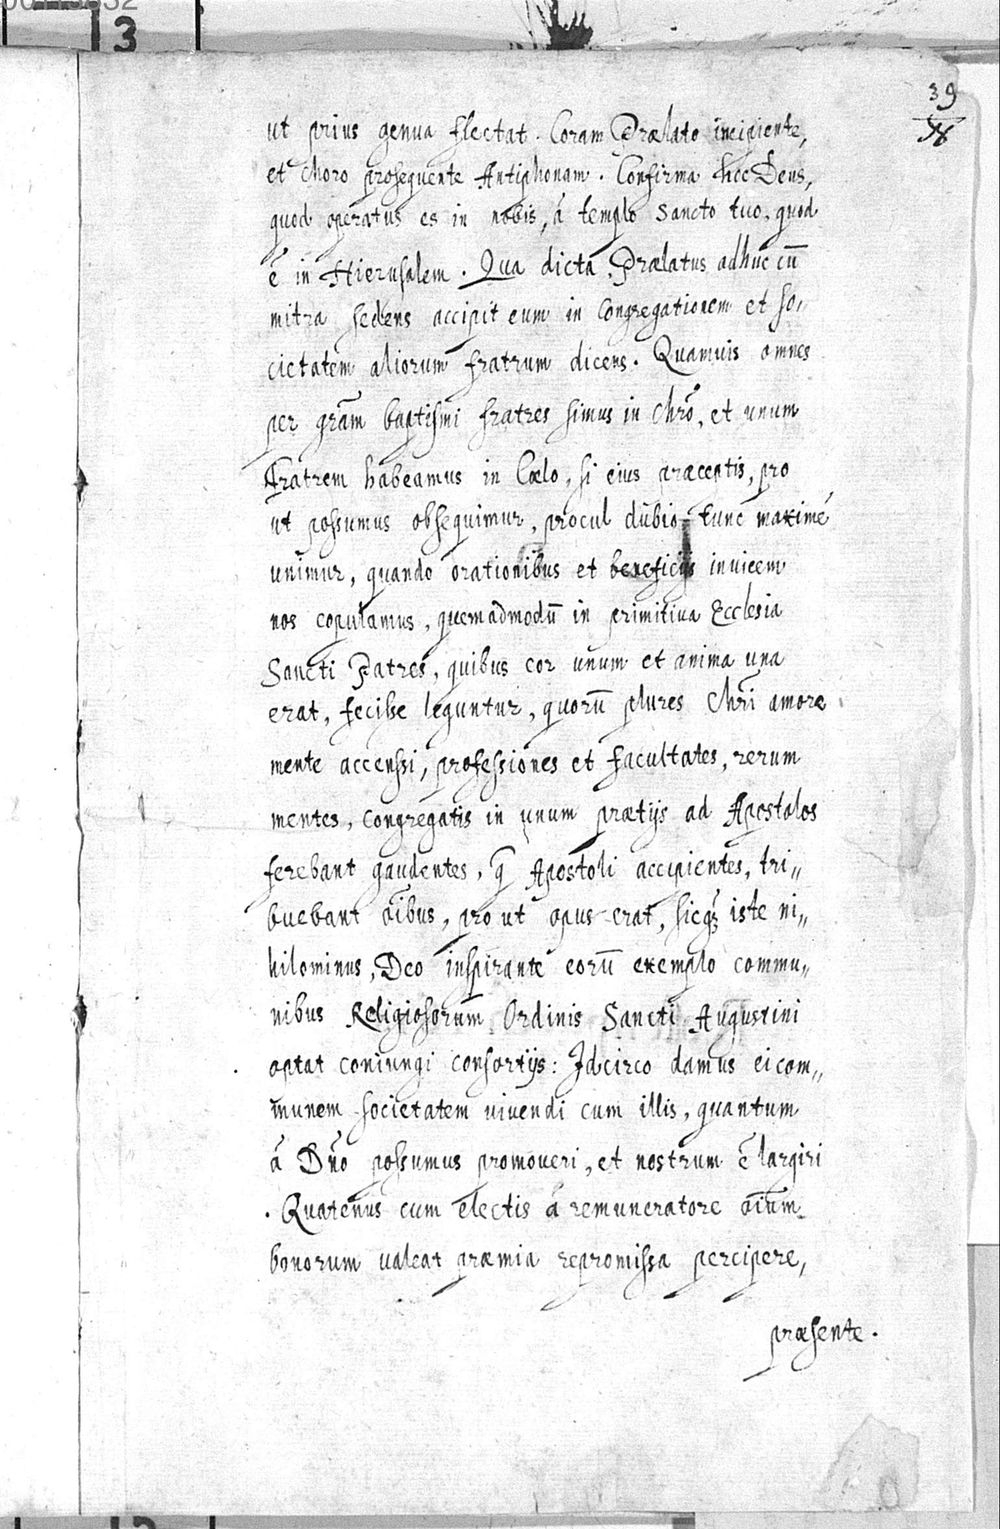 39
ut prius genua flectat. Coram Prælato incipiente,
et choro prosequente Antiphonam. Confirma hoc Deus,
quod operatus es in nobis, á templo sancto tuo, quod
ē in Hierusalem. Qua dicta, Prælatus adhuc cū
mitra sedens accipit eum in congregationem et so,
cietatem aliorum fratrum dicens. Quamuis omnes
per grām baptismi fratres simus in Chrō, et unum
Fratrem habeamus in Cœlo, si eius præceptis, pro
ut possumus obsequimur, procul dubio tunc maximé
unimur, quando orationibus et beneficijs inuicem
nos copulamus, quemadmodū in primitiua Ecclesia
Sancti Patres, quibus cor unum et anima una
erat, fecisse leguntur, quorū plures Chrī amore
mente accenssi, professiones et facultates, rerum
mentes, congregatis in unum prætijs ad Apostolos
ferebant gaudentes, q̄ Apostoli accipientes, tri,,
buebant oībus, pro ut opus erat, sicq; iste ni,,
hilominus, Deo inspirante eorū exemplo commu,,
nibus Religiosorum Ordinis Sancti Augustini
optat coniungi consortijs: Idcirco damus ei com,,
munem societatem uiuendi cum illis, quantum
á Dño possumus promoueri, et nostrum ē largiri
. Quatenus cum electis á remuneratore oīum
bonorum ualeat præmia repromissa percipere,
præsente.